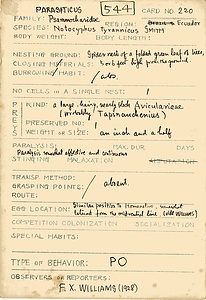 PARASITICUS 544 CARD NO. 220
FAMILY: Psammocharidae REGION: Ecuador
SPECIES: Notocyphus Tyrannicus SMITH
BODY WEIGHT: BODY LENGTH:
NESTING GROUND: Spiders nest of a folded green leaf of tree,
CLOSING MATERIALS: 5 or 6 feet high from the ground.
BURROWING HABIT: abs.
NO. CELLS IN A SINGLE NEST: 1
PREY
KIND: a large, hairy, nearly black Aviculariae
(probably Tapinauchenius)
PRESERVED NO: 1
WEIGHT OR SIZE: an inch and a half
PARALYSIS: MAX. DUR. DAYS
Paralysis market effective and continuous
STINGING MALAXATION:
TRANSP. METHOD:
GRASPING POINTS: absent.
ROUTE:
EGG LOCATION: Similar position to Homonotus, somewhat
behind from the mid-ventral line (old Williams)
COMPETITION COLONIZATION SOCIALIZATION
SPECIAL HABITS:
TYPE OF BEHAVIOR: PO
OBSERVERS OR REPORTERS:
F. X. WILLIAMS (1928)